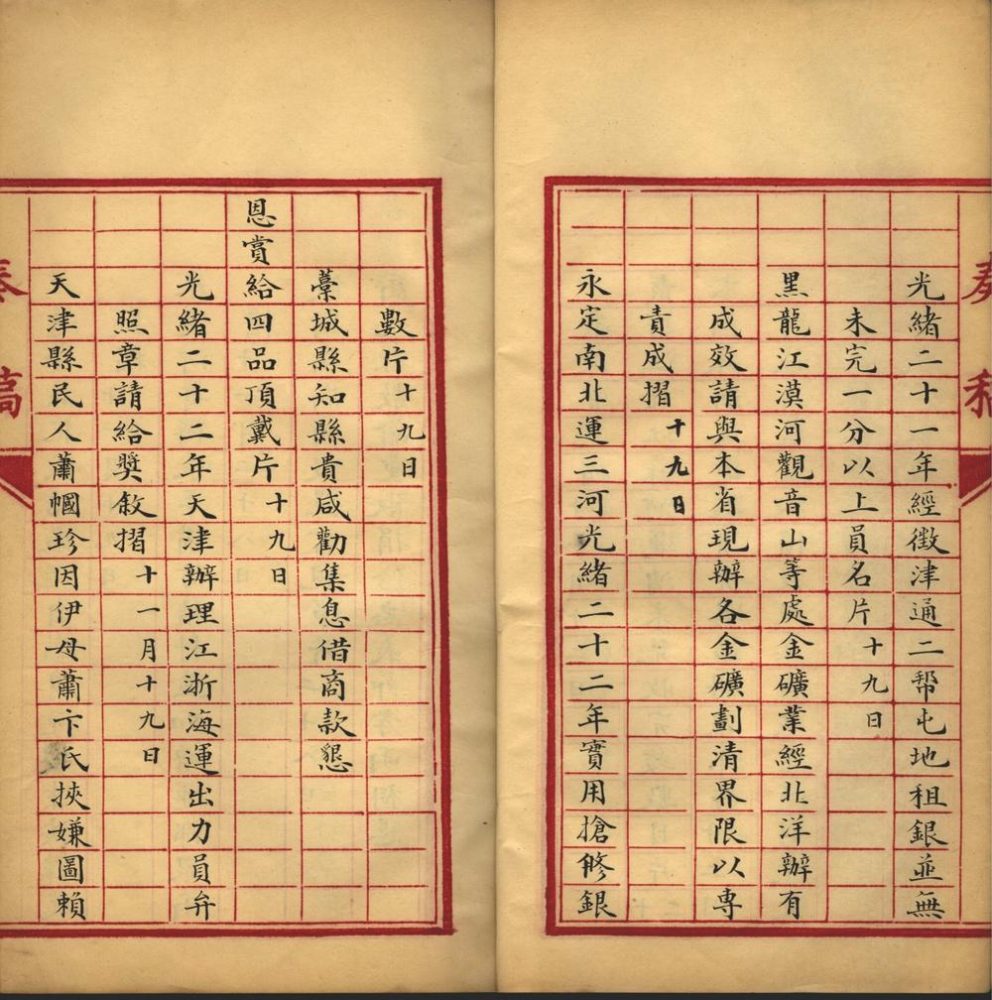 奏稿
光緒二十一年經徵津通二幫屯地租銀並無
未完一分以上員名片十九日
黑龍江漠河觀音山等處金礦業經北洋辦有
成效請與本省現辦各金礦劃清界限以專
責成摺十九日
永定南北運三河光緒二十二年實用搶修銀
數片十九日
藁城縣知縣貴咸勸集息借商款懇
恩賞給四品頂戴片十九日
光緒二十二年天津辦理江浙海運出力員弁
照章請給獎敘摺十一月十九日
天津縣民人蕭幗珍因伊母蕭卞氏挾嫌圖賴
奏稿